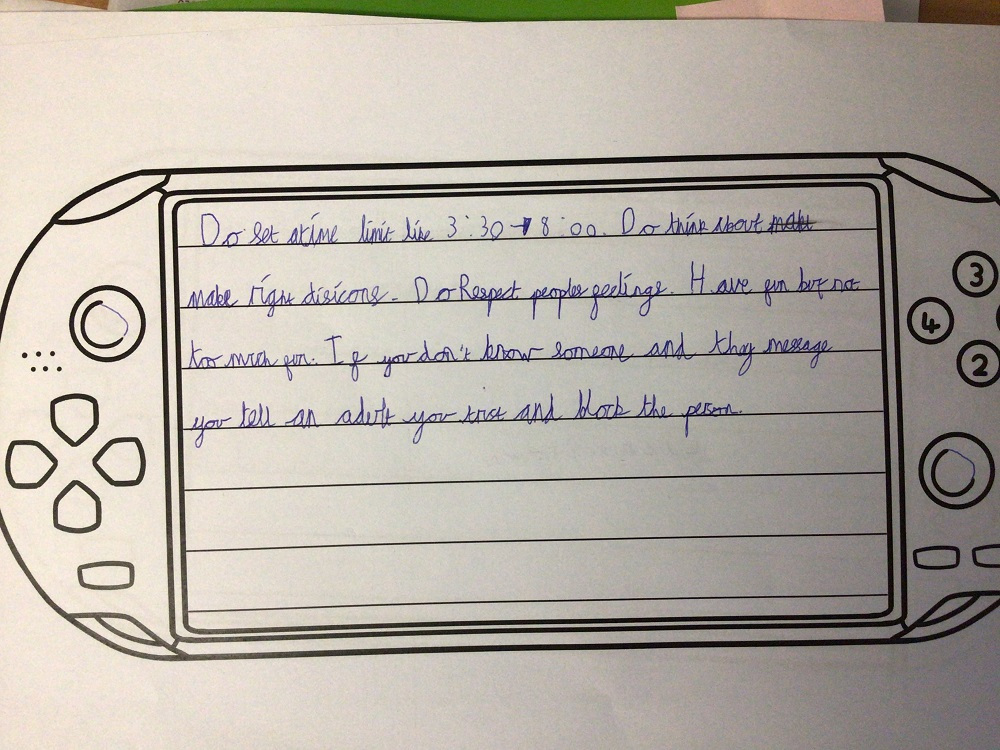 Do set a time limit like 3:30 → 8:00. Do think about make
make right disicons. Do Respect peoples feelings. Have fun but not
too much fun. If you don't know someone and they message
you tell an adult you trust and block the person.
3
4
2